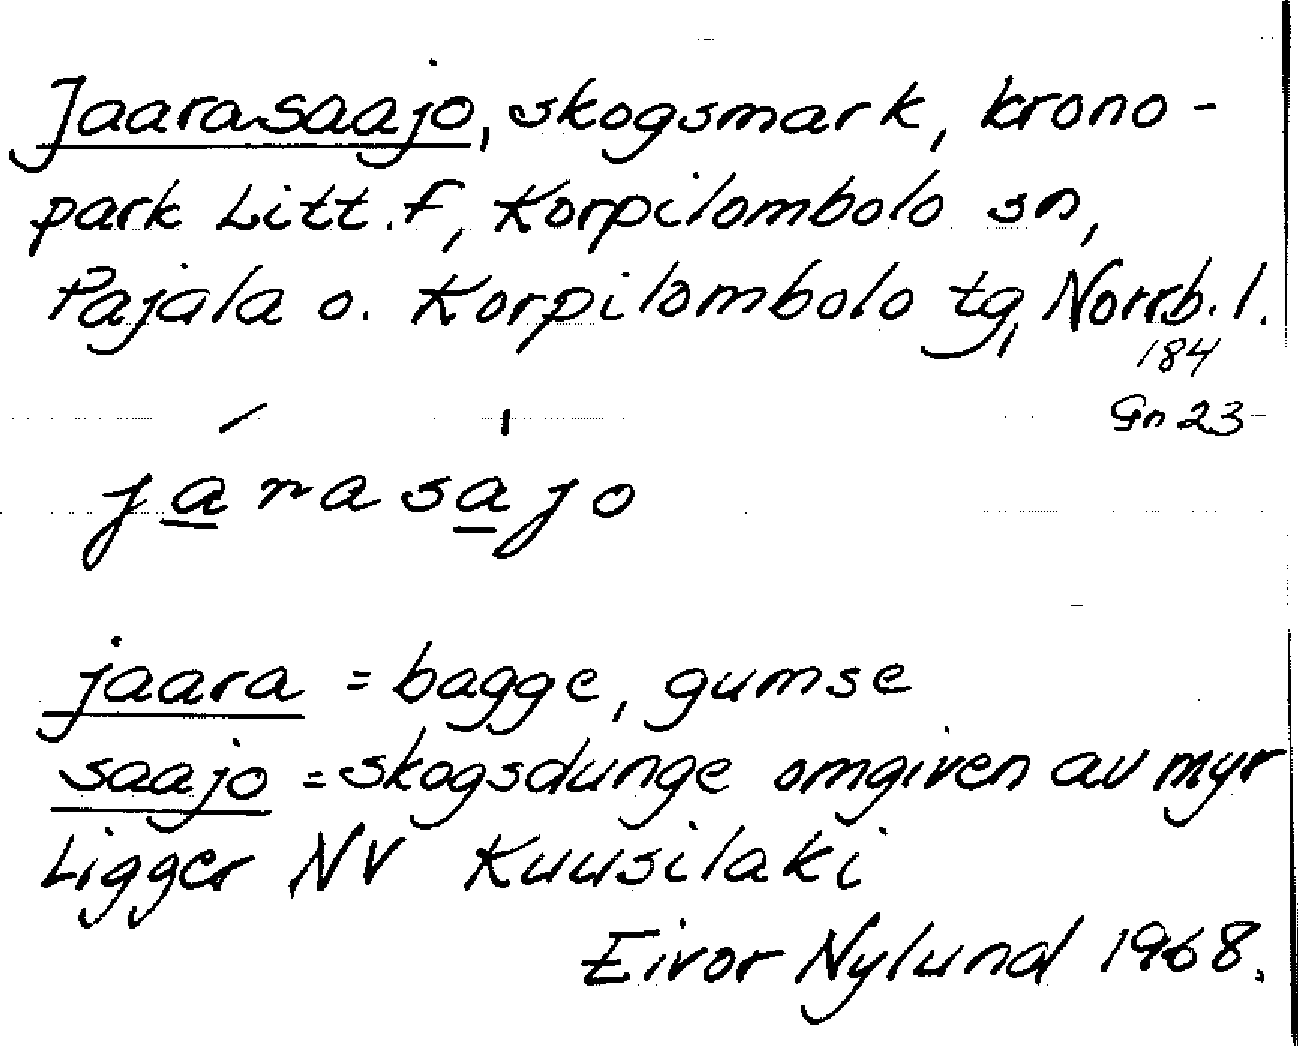 Jaarasaajo, skogsmark, krono-
park Litt. F, Korpilombolo sn,
Pajala o. Korpilombolo tg, Norrb. l.
184
Gn 23
járasa̍jo
jaara = bagge, gumse
saajo = skogsdunge omgiven av myr
Ligger NV Kuusilaki
Eivor Nylund 1968.